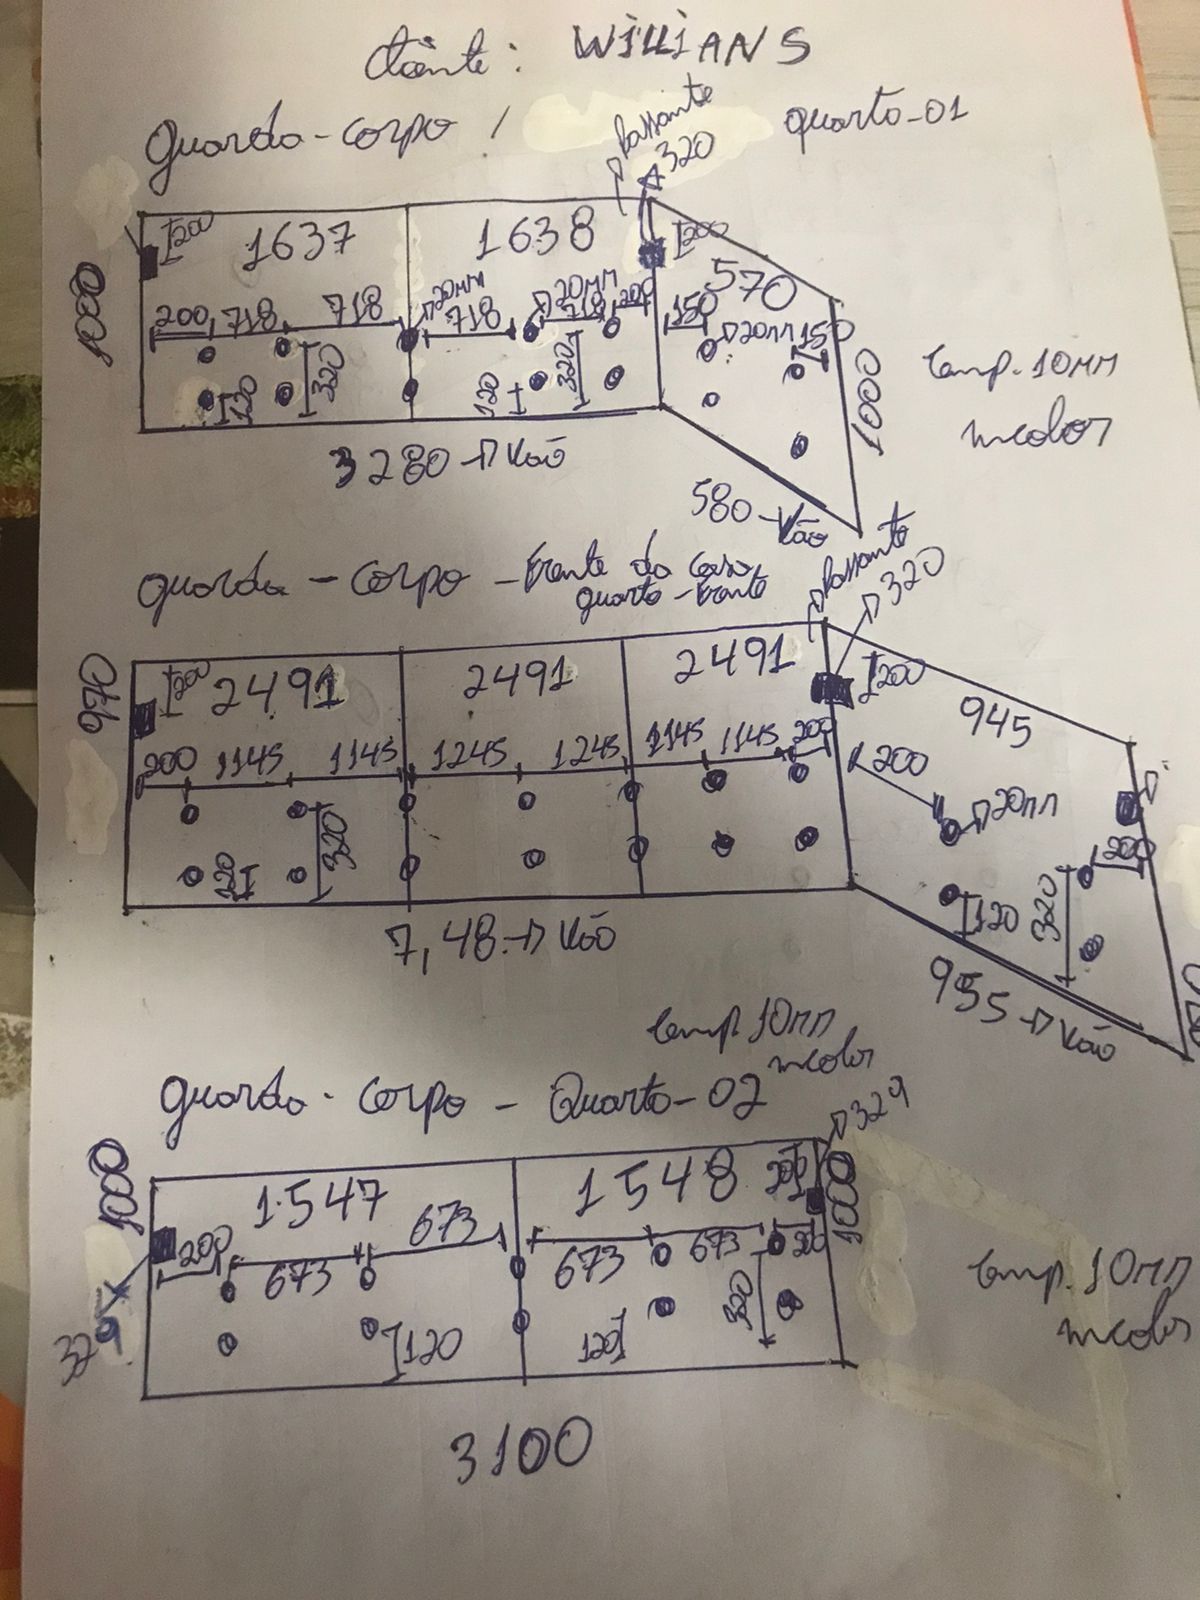 cliente: WILLIANS
guarda-corpo / quarto-01
passante
320
200
1637
1638
200
570
1000
200 718 718
20mm
718
20mm
718
200
150
20mm
150
120
320
120
320
1000
temp. 10mm
incolor
3280 → Vão
580 - Vão
guarda - corpo - frente da casa
quarto - frente
passante
320
970
200
2491
2491
2491
200
945
200 1145 1145
1245 1245
1145 1145 200
200
20mm
200
120
320
120
320
7,48 → Vão
955 → Vão
temp. 10mm
incolor
guarda-corpo - Quarto-02
329
1000
1547
1548
200
1000
200 673 673
673 673 200
320
329
120
120
temp. 10mm
incolor
3100